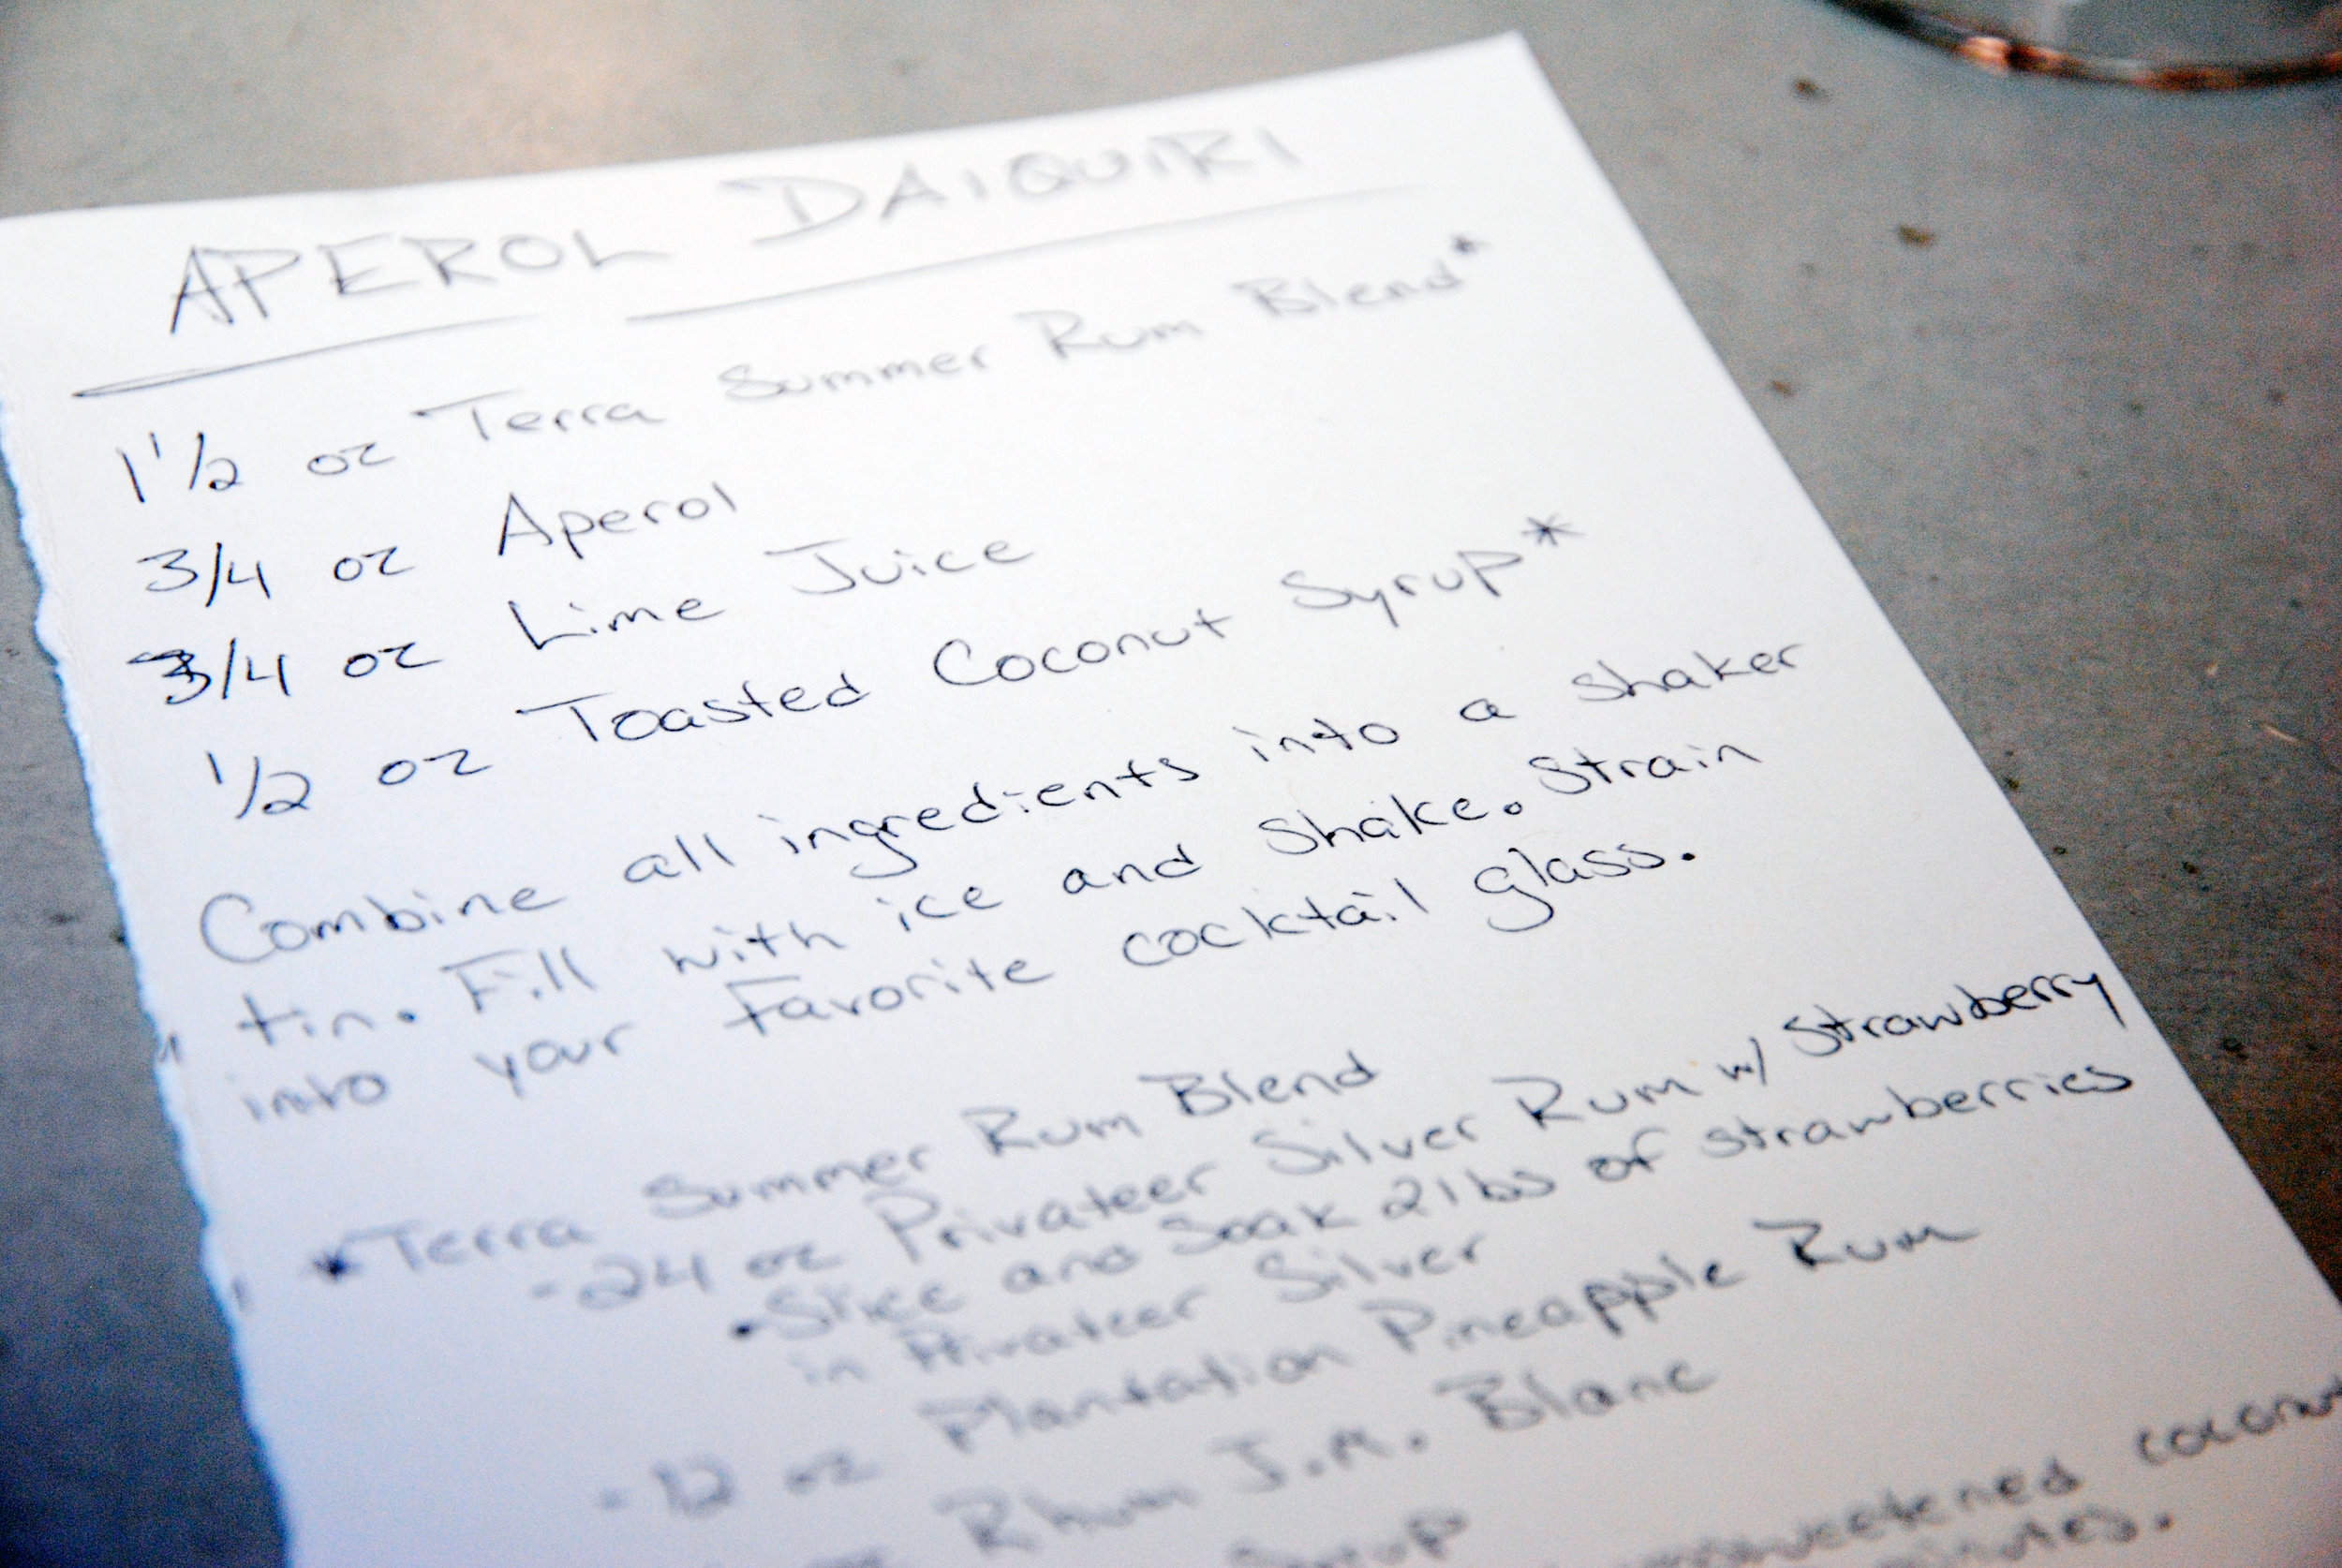 APEROL DAIQUIRI
1 1/2 oz Terra Summer Rum Blend*
3/4 oz Aperol
3/4 oz Lime Juice
1/2 oz Toasted Coconut Syrup*
Combine all ingredients into a shaker
tin. Fill with ice and shake. Strain
into your favorite cocktail glass.
*Terra Summer Rum Blend
-24 oz Privateer Silver Rum w/ Strawberry
•Slice and Soak 2 lbs of strawberries
in Privateer Silver
-12 oz Plantation Pineapple Rum
oz Rhum J.M. Blanc
Syrup
unsweetened coconut
minutes.